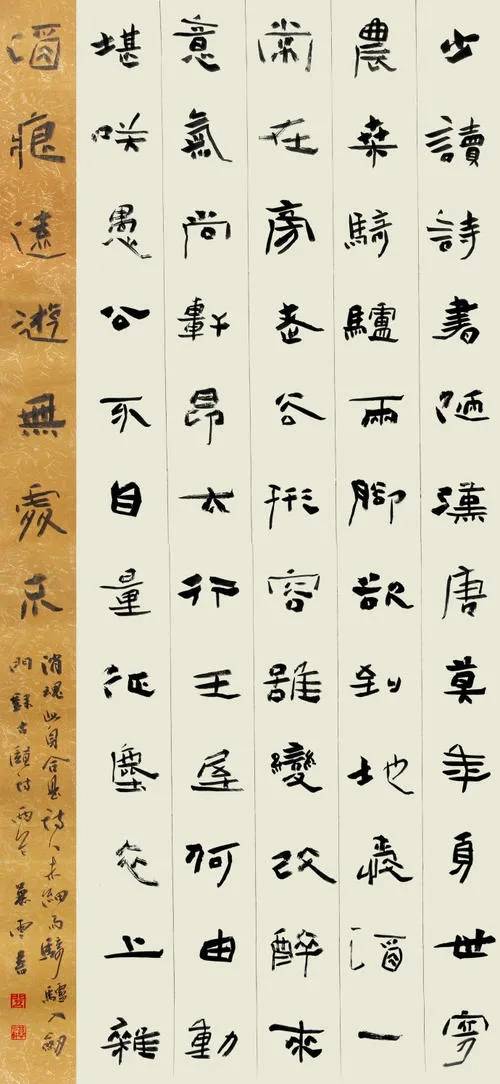 少讀詩書陋漢唐莫年身世寄
農桒騎驢兩腳欲到地愛酒一
常在旁老去形容雖變改醉來
意氣尚軒昂太行王屋何由動
堪咲愚公不自量征塵衣上雜
酒痕遠遊無處不
消魂此身合是詩人未細雨騎驢入劍
門 詩兩首 慕雲書